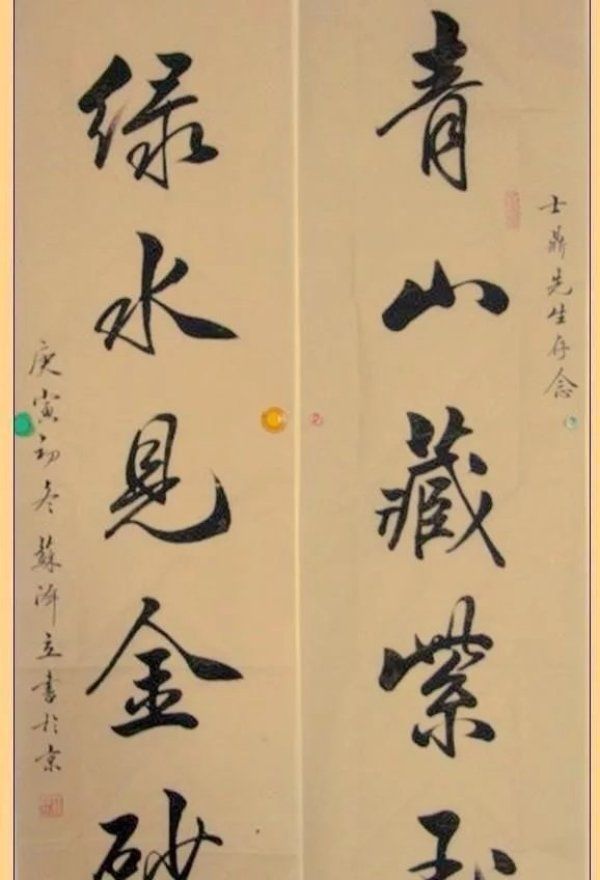 士鼎先生存念
青山藏紫玉
绿水见金砂
庚寅初冬苏泽立书于京